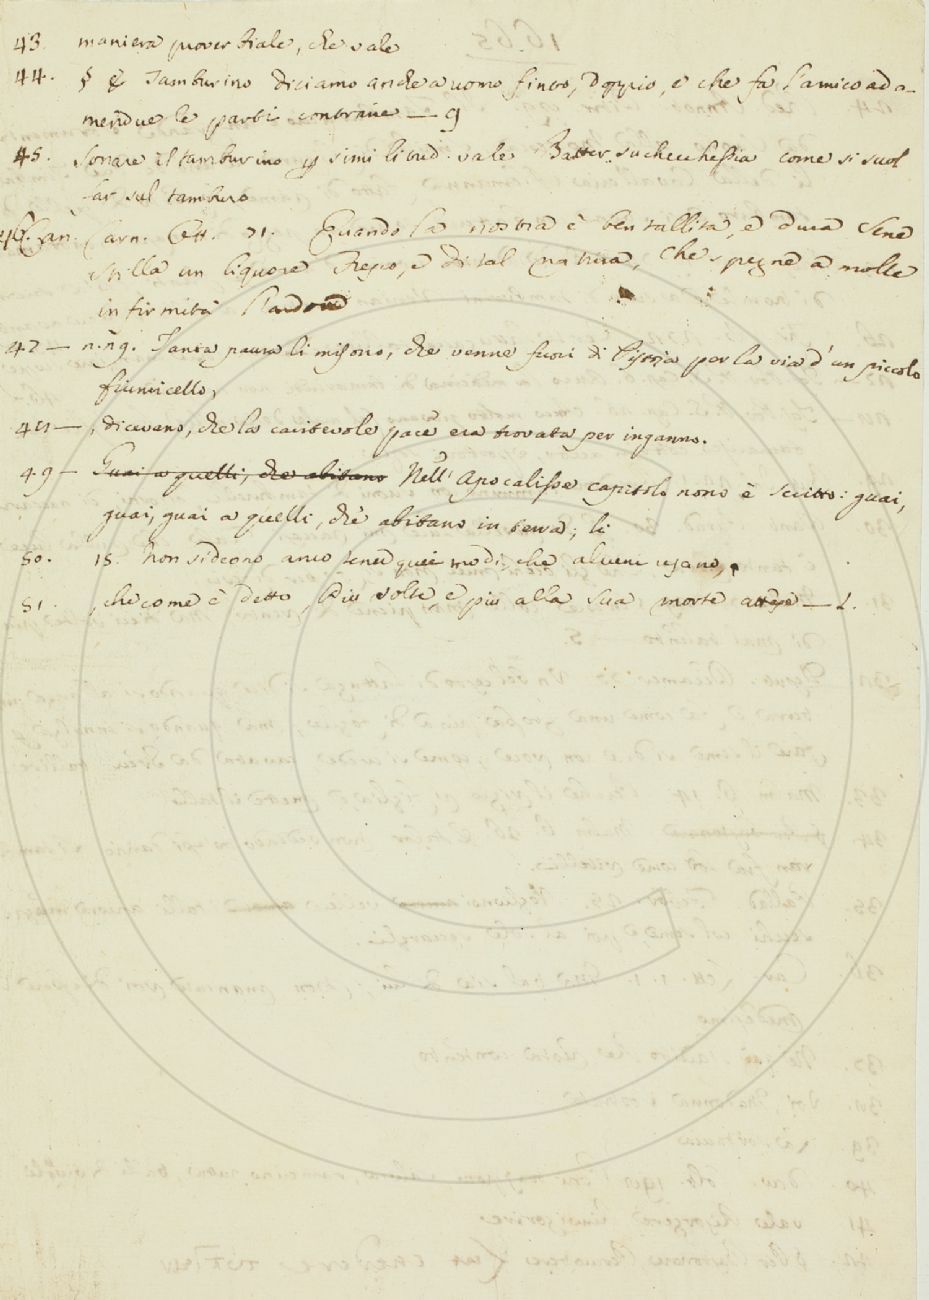 43. maniera proverbiale, che vale
44. § E Tamburino diciamo anche a uomo finto, doppio, e che fa l'amico ad a-
mendue le parti contrarie — 9
45. Sonare il tamburino p simi litud. vale Batter suchecchessia come si suol
far sul tamburo
46. Can. Carn. Ott. 71. Quando la nostra è ben tallita, e dura Sene
stilla un liquore fresco, e di tal natura, che spegne a molte
infirmità
47 — n. ng. Tanta paura li misono, che venne fuori di Pistoia per la via d'un piccolo
fiumicello,
48 — , dicevano, che la caritevole pace era trovata per inganno.
49 — Guai a quelli, che abitano Nell' Apocalisse capitolo nono è scritto: guai,
guai, guai a quelli, che abitano in terra; li
50. 15. Non sideono anco tener quei modi, che alcuni usano,
51. , che come è detto più volte è più alla sua morte — L.